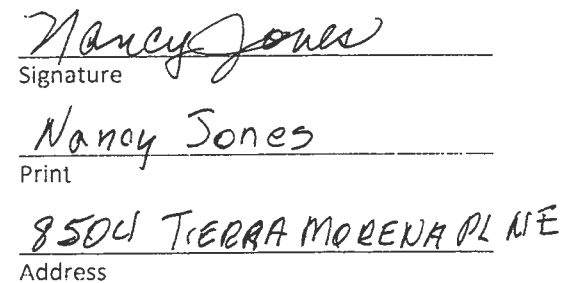 Nancy Jones
Signature
Nancy Jones
Print
8504 TIERRA MORENA PL NE
Address